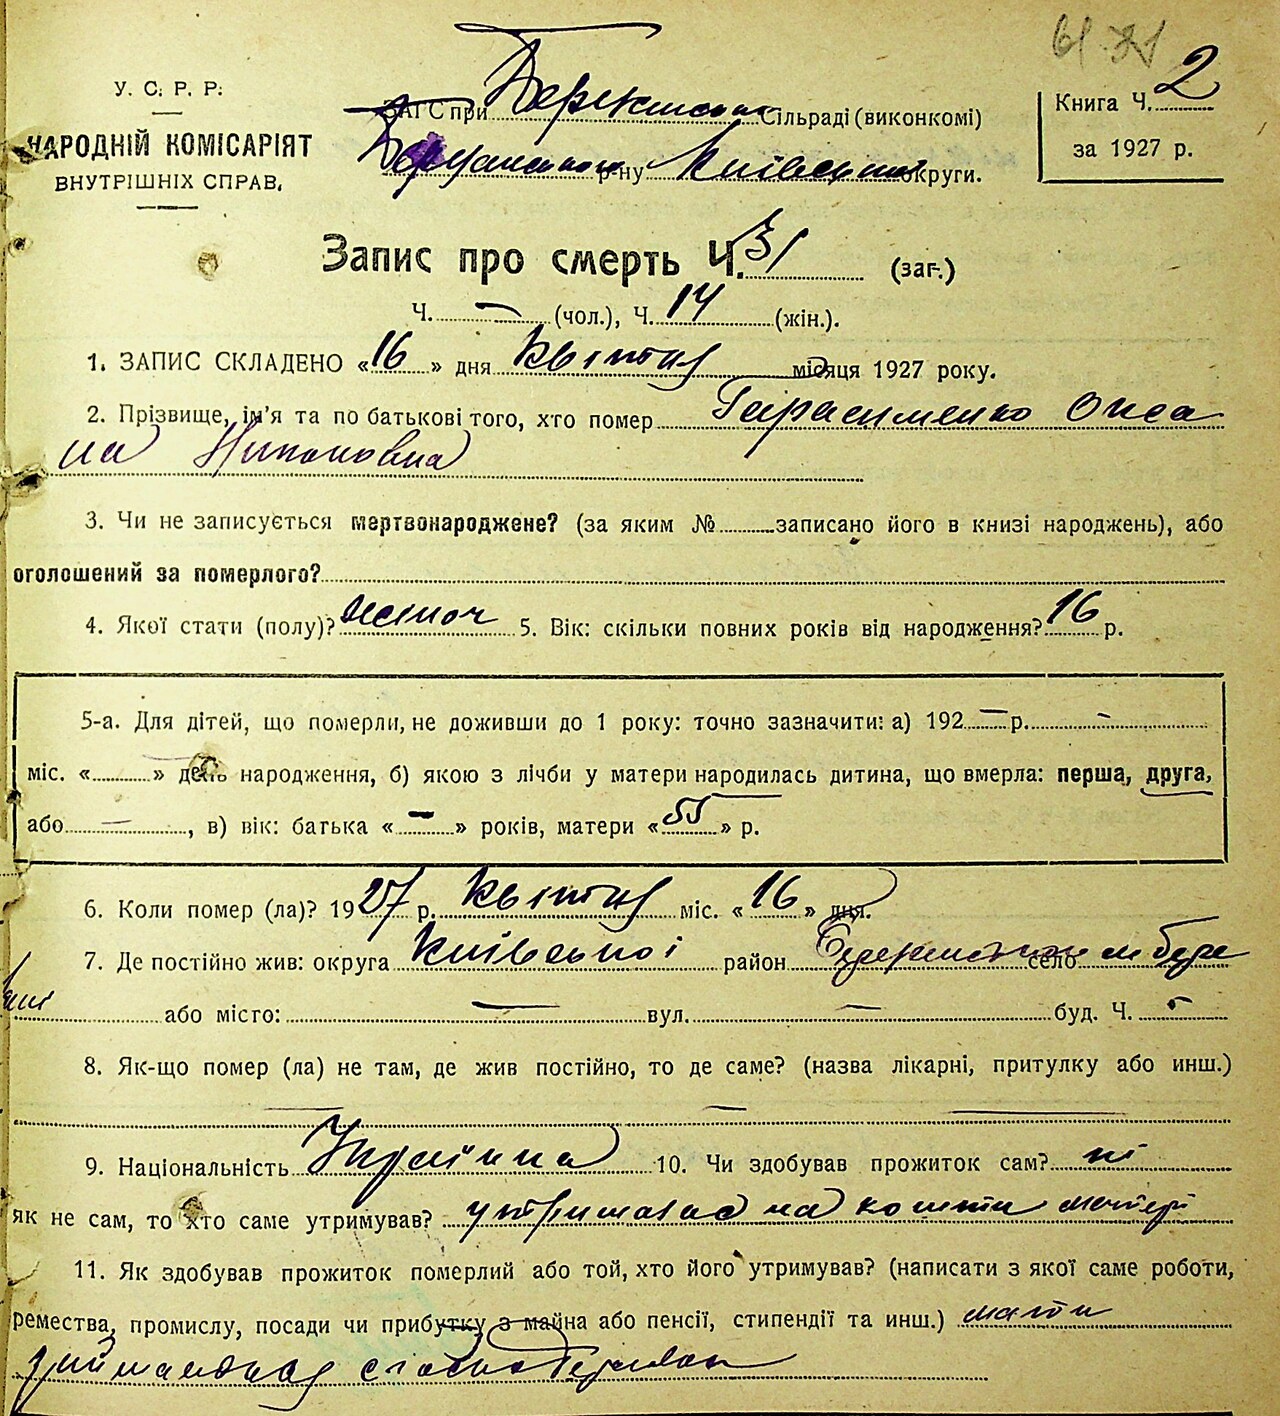 У. С. Р. Р.
НАРОДНІЙ КОМІСАРІЯТ
ВНУТРІШНІХ СПРАВ.
ЗАГС при Сільраді (виконкомі)
р-ну Київської округи.
Книга Ч. 2
за 1927 р.
Запис про смерть Ч. 31 (заг.)
Ч. — (чол.), Ч. 14 (жін.).
1. ЗАПИС СКЛАДЕНО «16» дня квітня місяця 1927 року.
2. Прізвище, ім'я та по батькові того, хто помер Гарасименко Окса
на Никоновна
3. Чи не записується мертвонароджене? (за яким № записано його в книзі народжень), або
оголошений за померлого?
4. Якої стати (полу)? жіноч 5. Вік: скільки повних років від народження? 16 р.
5-а. Для дітей, що померли, не доживши до 1 року: точно зазначити: а) 192 — р. —
міс. « » день народження, б) якою з лічби у матери народилась дитина, що вмерла: перша, друга,
або —, в) вік: батька « — » років, матери « 55 » р.
6. Коли помер (ла)? 1927 р. квітня міс. «16» дня.
7. Де постійно жив: округа Київської район село
або місто: — вул. — буд. Ч. -
8. Як-що помер (ла) не там, де жив постійно, то де саме? (назва лікарні, притулку або инш.)
— — —
9. Національність Українка 10. Чи здобував прожиток сам? ні
як не сам, то хто саме утримував? на кошти матери
11. Як здобував прожиток померлий або той, хто його утримував? (написати з якої саме роботи,
ремества, промислу, посади чи прибутку з майна або пенсії, стипендії та инш.) мати